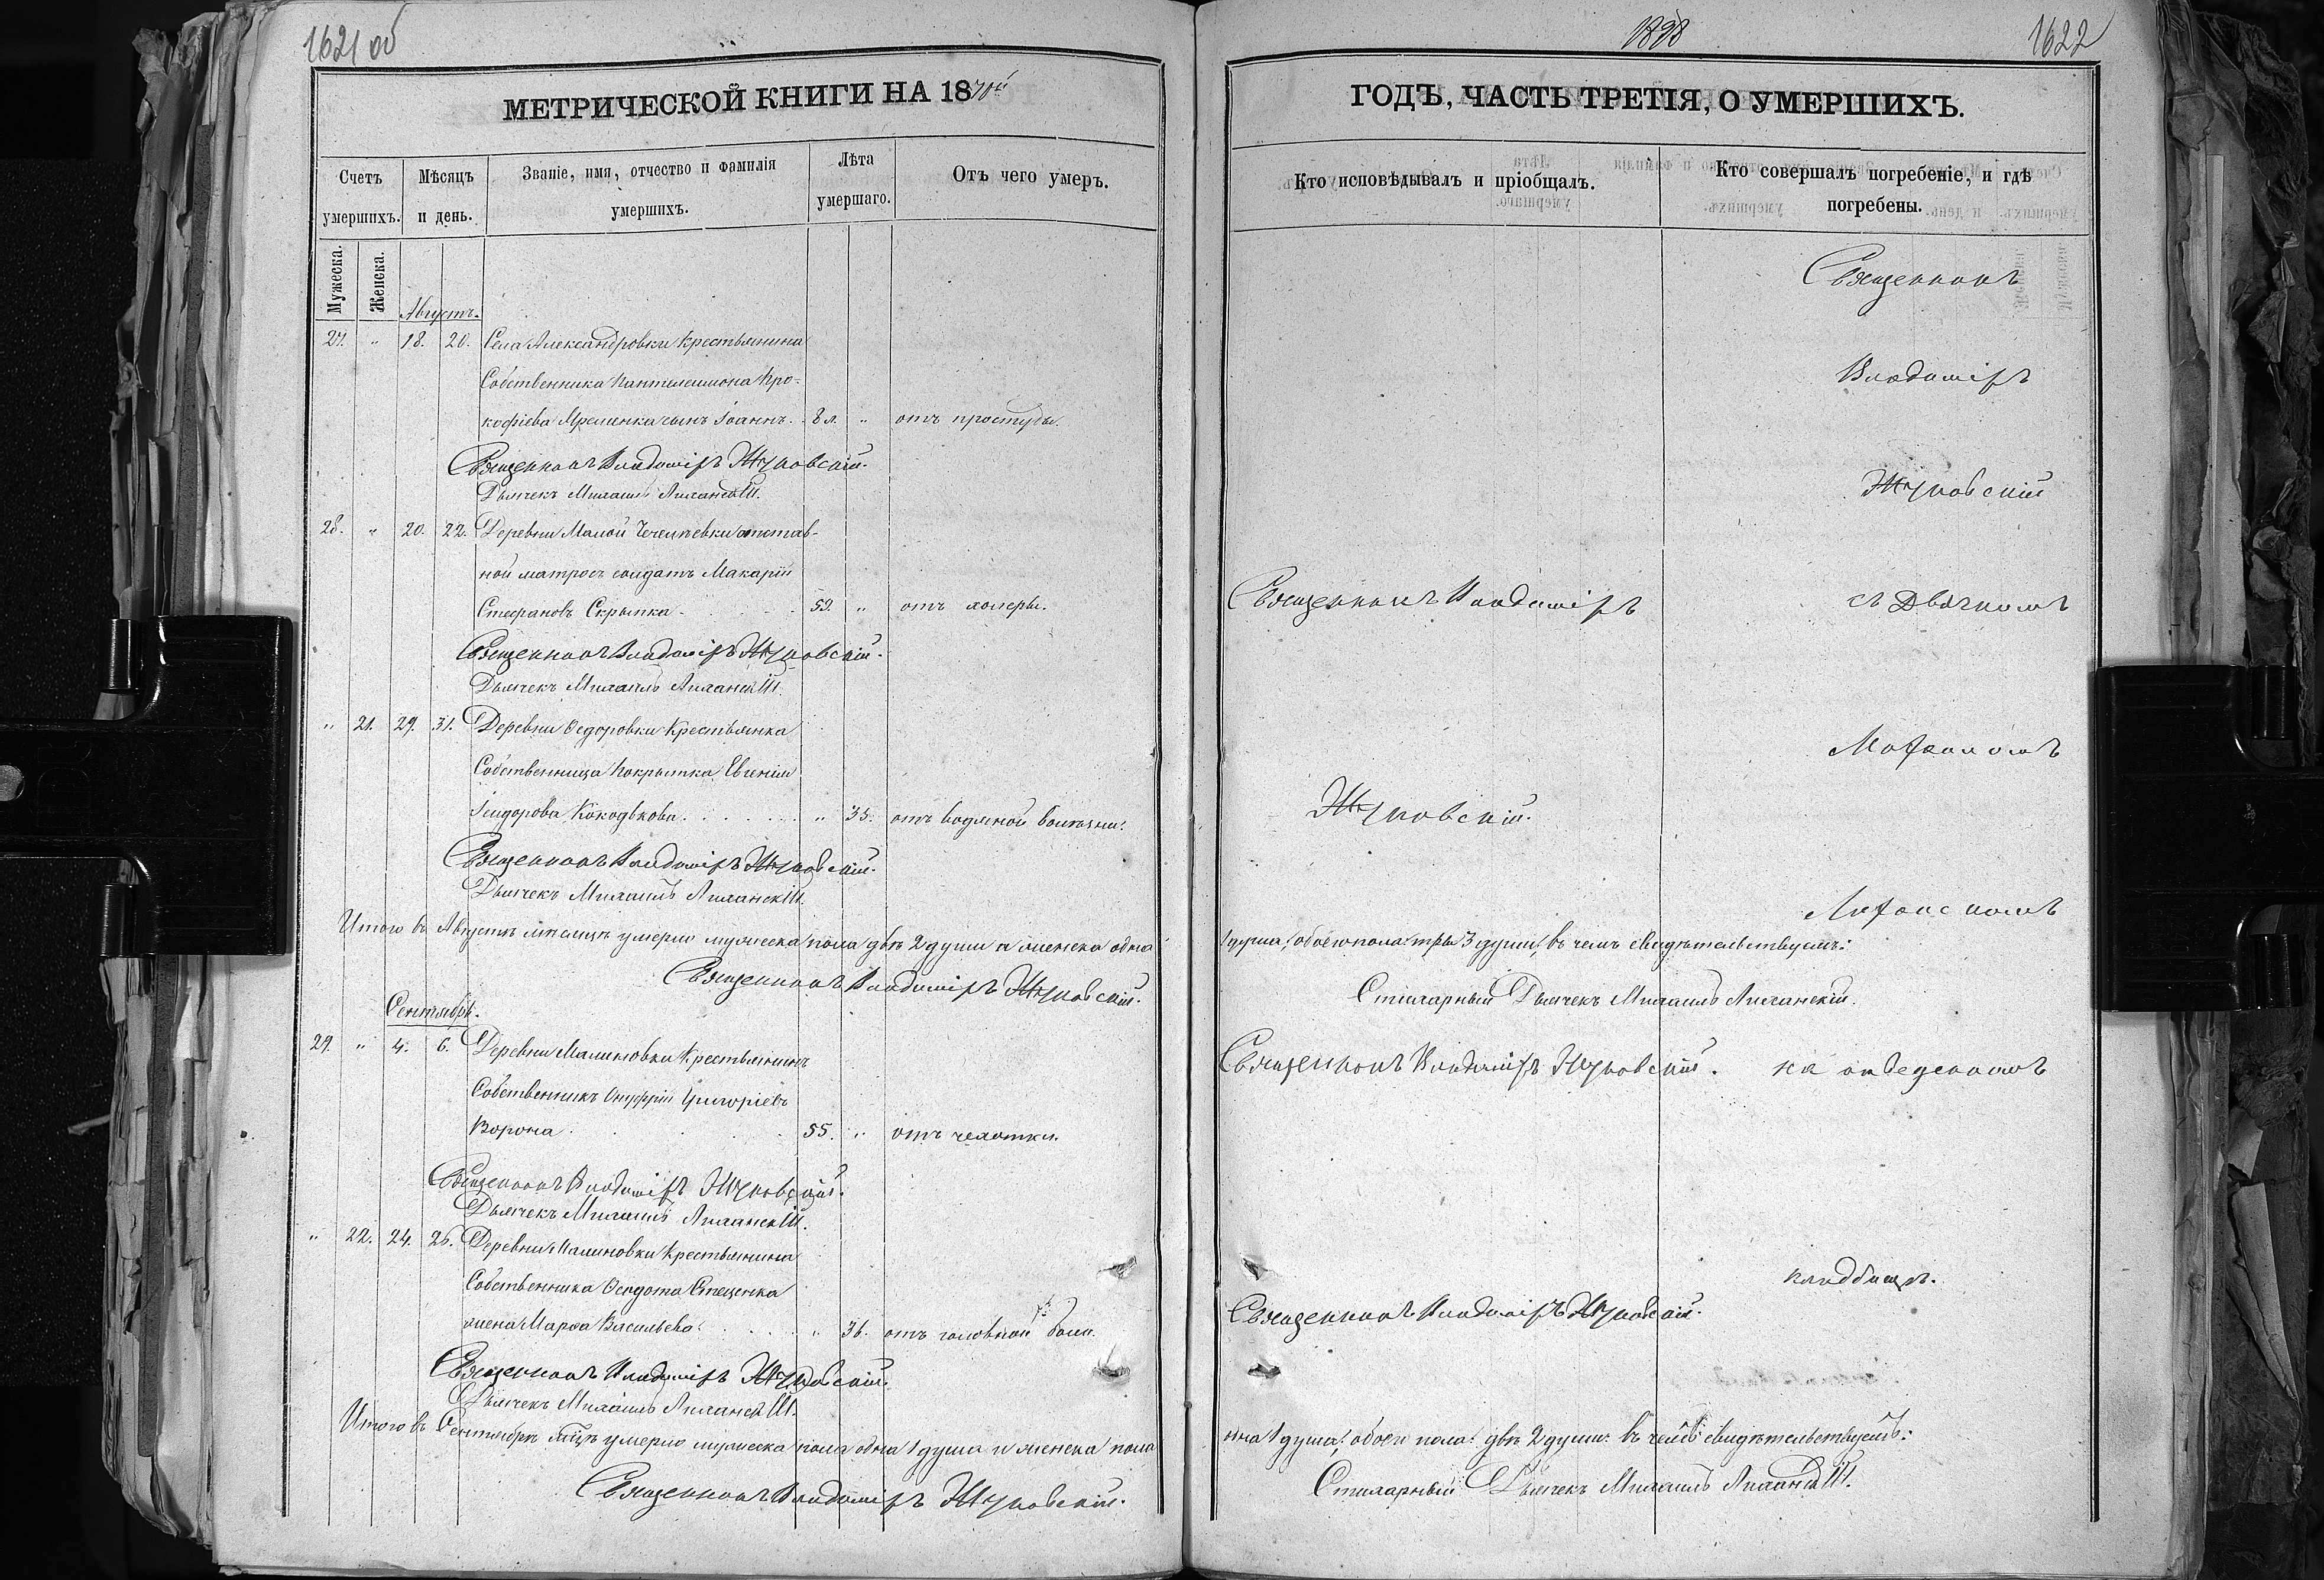 1621 об
МЕТРИЧЕСКОЙ КНИГИ НА 1870й
Счетъ умершихъ.
Мѣсяцъ и день.
Званіе, имя, отчество и фамилія умершихъ.
Лѣта умершаго.
Отъ чего умеръ.
Мужеска.
Женска.
Августъ.
27. " 18. 20. Села Александровки крестьянина
Собственника Пантелеимона Про-
кофіева сынъ Іоаннъ. 8 л. " отъ простуды.
Священникъ Владиміръ Жуковскій.
Дьячекъ Михаилъ
28. " 20. 22. Деревни Малой отстав-
ной матросъ солдатъ Макарій
Стефановъ Скрыпка 59. " отъ холеры.
Священникъ Владиміръ Жуковскій.
Дьячекъ Михаилъ
" 21. 29. 31. Деревни Ѳедоровки Крестьянка
Собственница покрытка Евгенія
Ісидорова " 35. отъ водяной болѣзни.
Священникъ Владиміръ Жуковскій.
Дьячекъ Михаилъ
Итого въ Августѣ мѣсяцѣ умерло мужеска пола двѣ 2 души и женска одна
Священникъ Владиміръ Жуковскій.
Сентябрь.
29. " 4. 6. Деревни Малиновки Крестьянинъ
Собственникъ Онуфрій Григоріевъ
Ворона 55. " отъ чахотки.
Священникъ Владиміръ Жуковскій.
Дьячекъ Михаилъ
" 22. 24. 26. Деревни Малиновки крестьянина
Собственника Ѳеодота Стеценка
жена Марѳа Васильева " 36. отъ головной боли.
Священникъ Владиміръ Жуковскій.
Дьячекъ Михаилъ
Итого въ Сентябрѣ мцѣ умерло мужеска пола одна 1 душа и женска пола
Священникъ Владиміръ Жуковскій.
1622
ГОДЪ, ЧАСТЬ ТРЕТІЯ, О УМЕРШИХЪ.
Кто исповѣдывалъ и пріобщалъ.
Кто совершалъ погребеніе, и гдѣ погребены.
Священникъ
Владиміръ
Жуковскій
Священникъ Владиміръ
съ Дьячкомъ
Михаиломъ
Жуковскій.
1 душа, обоего пола три 3 души, въ чемъ свидѣтельствуемъ:
Стихарный Дьячекъ Михаилъ
Священникъ Владиміръ Жуковскій.
на отведенномъ
кладбищѣ.
Священникъ Владиміръ Жуковскій.
дна 1 душа, обоего пола двѣ 2 души: въ чемъ свидѣтельствуемъ:
Стихарный Дьячекъ Михаилъ